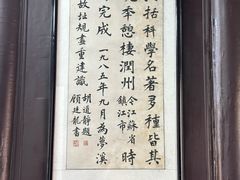 括科學名著多種皆其
晚年憩棲潤州今江蘇省鎮江市時
完成一九八五年九月為夢溪
故址規畫重建識
胡道靜題
顧廷龍書